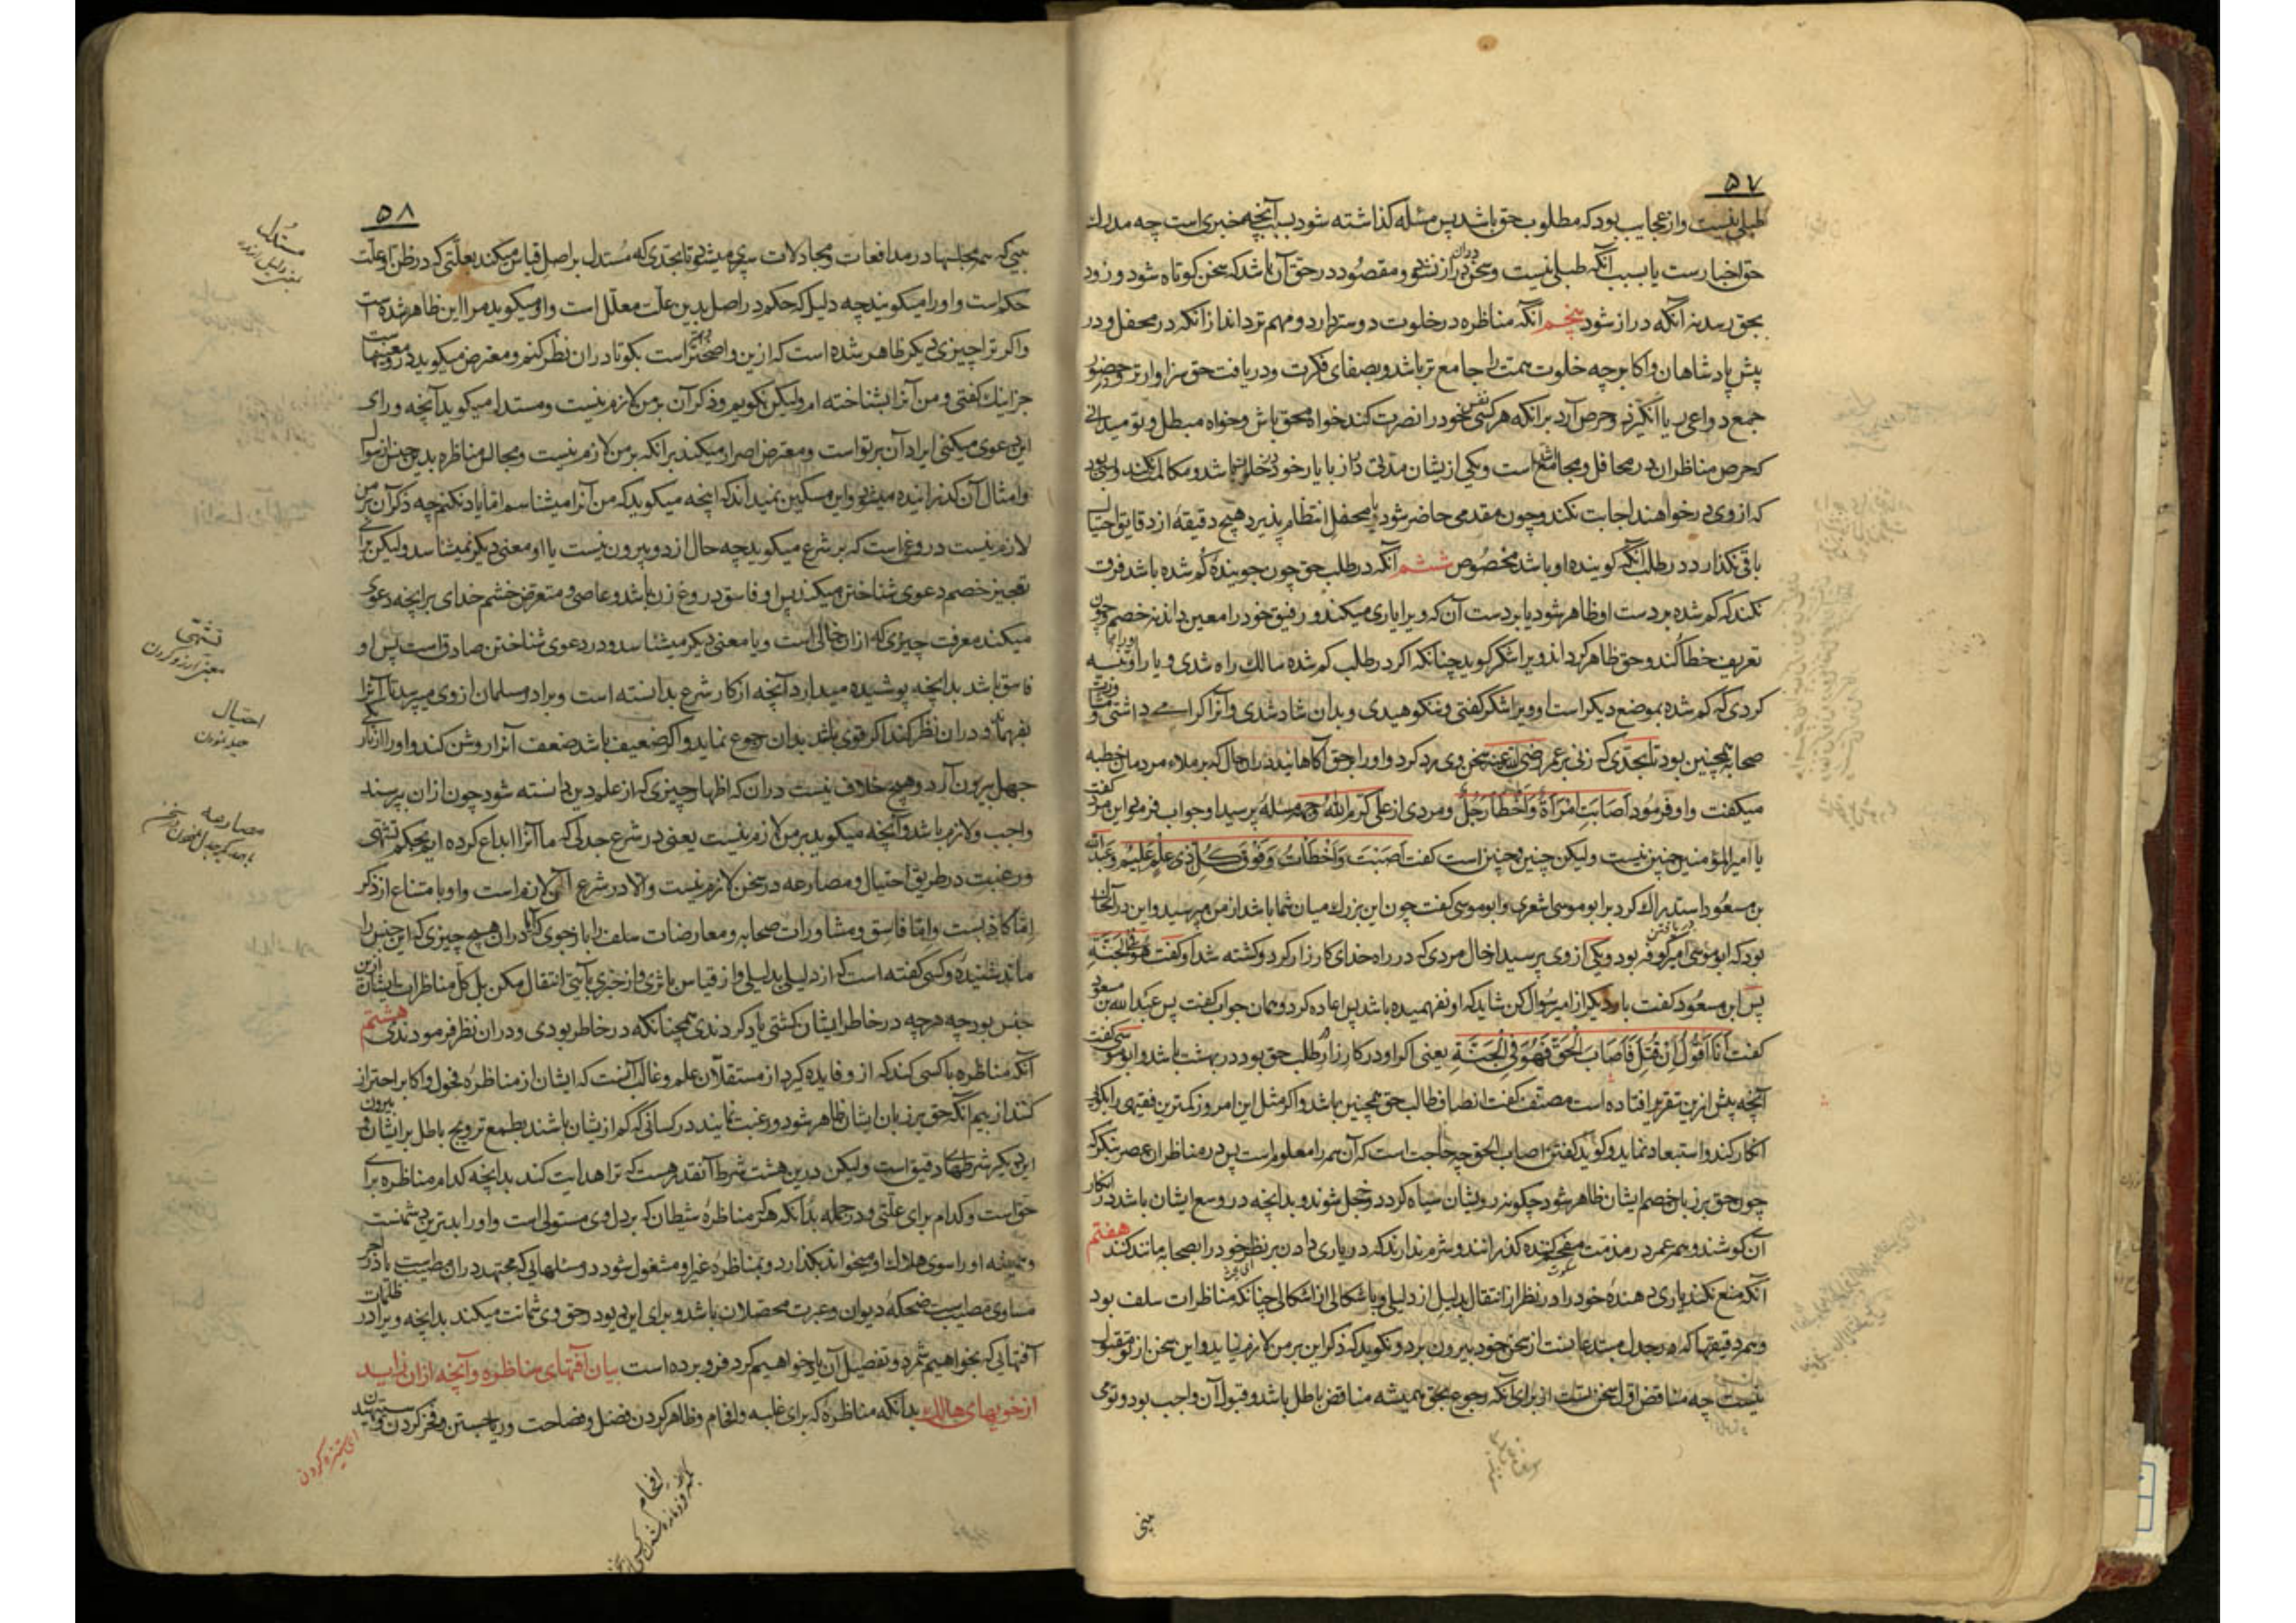 ۵۷
طبلی نیست و از عجایب بود که مطلوب حق باشد پس مسئله گذاشته شود بسبب آنچه خبری است چه مدرك
حق اخبارست یا بسبب آنکه طبلی نیست و سخن دران دراز نشود و مقصود در حق آن باشد که سخن کوتاه شود و زود
بحق رسد نه آنکه دراز شود پنجم آنکه مناظره در خلوت دوستر دارد و مهم تر داند از آنکه در محفل و در
پیش پادشاهان و اکابر چه خلوت همت را جامع تر باشد و بصفای فکرت و دریافت حق سزاوارتر و در حضور
جمع دواعی ریا انگیزد و حرص آرد بر آنکه هر کسی نفس خود را نصرت کند خواه محق باش و خواه مبطل و تو میدانی
که حرص مناظران در محافل و مجامع است و یکی از ایشان مدتی دراز با یار خود در خلا باشد و مکالمه نکند و بسی بود
که از وی درخواهند اجابت نکند و چون مقدمی حاضر شود یا محفل انتظام پذیرد هیچ دقیقه از دقایق احتیال
باقی نگذارد در طلب آنکه گوینده او باشد مخصوص ششم آنکه در طلب حق چون جویندۀ گم شده باشد فرق
نکند که گم شده بر دست او ظاهر شود یا بر دست آن که ویرا یاری میکند و رفیق خود را معین داند نه خصم چون
تعریف خطا کند و حق ظاهر کرداند ویرا شکر گوید چنانکه اگر در طلب گم شده سالك راه شدی و یار او تنبیه
کردی که گم شده بموضع دیگر است او ویرا شکر گفتی و ننکوهیدی و بدان شاد شدی و آنرا گرامی داشتی و
صحابه همچنین بود تا بحدی که زنی بر عمر رضی الله عنه سخن وی رد کرد و او را بحق آگاهانید در آن حال که بر ملاء مردمان خطبه
میگفت و او فرمود اَصَابَتِ امْرَأَةٌ وَاَخْطَأَ رَجُلٌ و مردی از علی کرم الله وجهه مسئله پرسید او جواب فرمود این مرد گفت
یا امیرالمؤمنین چنین نیست ولیکن چنین و چنین است گفت اَصَبْتَ وَاَخْطَأْتُ وَفَوْقَ كُلِّ ذِي عِلْمٍ عَلِيمٌ و عبدالله
بن مسعود استدراك کرد بر ابو موسی اشعری و ابو موسی گفت چون این بزرك میان شما باشد از من مپرسید و این در آنحال
بود که ابو موسی امیر کوفه بود و یکی از وی پرسید از حال مردی که در راه خدای کارزار کرد و کشته شد او گفت هُوَ فِي الْجَنَّةِ
پس ابن مسعود گفت بار دیگر از امیر سؤال کن شاید که او نفهمیده باشد پس اعاده کرد و همان جواب گفت پس عبدالله بن مسعود
گفت اَنَا اَقُولُ اِنْ قُتِلَ فَاَصَابَ الْحَقَّ فَهُوَ فِي الْجَنَّةِ یعنی اگر او در کارزار طلب حق بود در بهشت باشد و ابو موسی گفت
آنچه پیش ازین تقریر افتاده است مصنف گفت انصاف طالب حق همچنین باشد و اگر مثل این امروز کمترین فقیهی را بگویی
انکار کند و استبعاد نماید و گوید گفتن اصاب الحق چه حاجت است که آن همه را معلوم است پس در مناظران عصر بنگر که
چون حق بر زبان خصم ایشان ظاهر شود چگونه رویشان سیاه گردد و خجل شوند و بدانچه در وسع ایشان باشد در انکار
آن کوشند و همه عمر در مذمت مفحم کننده گذرانند و شرم ندارند که در یاری دادن بر نظر خود را بصحابه مانند کنند هفتم
آنکه منع نکند یاری دهندۀ خود را در نظر از انتقال بدلیل از دلیلی و باشکالی از اشکالی چنانکه مناظرات سلف بود
و همه دقیقها که در جدل مبتدعا ست از سخن خود بیرون برد و نگوید که ذکر این بر من لازم نیاید و این سخن از تو مقبول
نیست چه مناقض اول سخن تست از برای آنکه رجوع بحق همیشه مناقض باطل باشد و قبول آن واجب بود و تو می
بینی
۵۸
بینی که همه مجلسها در مدافعات و مجادلات سپری میشود تا بحدی که مُستدل بر اصل قیاس میکند بعلتی که در ظن او علت
حکم است و او را میگویند چه دلیل که حکم در اصل بدین علت معلّل است و او میگوید مرا این ظاهر شده است
و اگر ترا چیزی دیگر ظاهر شده است که ازین واضح‌تر است بگو تا در ان نظر کنم و معترض میگوید درو معنیهاست
جز اینك گفتی و من آنرا بشناخته ام ولیکن نگویم و ذکر آن بر من لازم نیست و مستدل میگوید آنچه ورای
این دعوی میکنی ایراد آن بر تو است و معترض اصرار میکند بر آنکه بر من لازم نیست و مجالس مناظره بدین جنس از سؤال
و امثال آن گذرانیده میشود و این مسکین نمیداند که اینچه میگوید که من آنرا میشناسم اما یاد نکنم چه ذکر آن بر من
لازم نیست دروغ است که بر شرع میگوید چه حال از دو بیرون نیست یا او معنی دیگر نمیشناسد ولیکن برای
تعجیز خصم دعوی شناختن میکند پس او فاسق دروغ زن باشد و عاصی و متعرض خشم خدای بر انچه دعوی
میکند معرفت چیزی که از ان خالی است و یا معنی دیگر میشناسد و در دعوی شناختن صادق است پس او
فاسق باشد بدانچه پوشیده میدارد آنچه از کار شرع بدانسته است و برادر مسلمان از وی میپرسد تا آنرا
بفهماند و دران نظر کند اگر قوی باشد بدان رجوع نماید و اگر ضعیف باشد ضعف آنرا روشن کند و او را از تاریکی
جهل بیرون آرد و هیچ خلاف نیست دران که اظهار چیزی که از علم دین دانسته شود چون ازان بپرسند
واجب و لازم باشد و آنچه میگوید بر من لازم نیست یعنی در شرع جدلی که ما آنرا ابداع کرده ایم بحکم تشهی
و رغبت در طریق احتیال و مصارعه در سخن لازم نیست والا در شرع آن لازم است و او با متناع از ذکر
امّا کاذبست و امّا فاسق و مشاورات صحابه و معارضات سلف را بازجوی که تا دران هیچ چیزی که این جنس را
ماند شنیدۀ و کسی گفته است که از دلیلی بدلیلی و از قیاس باثری و از خبری بآیتی انتقال مکن بل کل مناظرات ایشان ازین
جنس بود چه هرچه در خاطر ایشان گشتی یاد کردندی همچنانکه در خاطر بودی و دران نظر فرمودندی هشتم
آنکه مناظره با کسی کند که ازو فایده گیرد از مستقلّان علم و غالب آنست که ایشان از مناظرۀ فحول و اکابر احتراز
کنند از بیم آنکه حق بر زبان ایشان ظاهر شود و رغبت نمایند در کسانی که کم از یشان باشند بطمع ترویج باطل بر ایشان و بیرون
این دیگر شرطهای دقیق است ولیکن درین هشت شرط آنقدر هست که ترا هدایت کند بدانچه کدام مناظره برای
حق است و کدام برای علتی و در جمله بدانکه هر که مناظرۀ شیطان که بر دل وی مستولی است و او را بدترین دشمنست
و همیشه او را سوی هلاك او میخواند بگذارد و بمناظرۀ غیر او مشغول شود در مسئلهایی که مجتهد دران مصیب است یا در اجر
مساوی مصیب است ضحکۀ دیوان و عبرت محصلان باشد و برای این دیو در حق وی شماتت میکند بدانچه ویرا در ظلمات
آفتهایی که بخواهیم شمرد و تفصیل آن یاد خواهیم کرد فرو برده است بیان آفتهای مناظره و آنچه ازان زاید
از خویهای هالك بدانکه مناظرۀ که برای غلبه و افحام و ظاهر کردن فضل و فصاحت و ریا جستن و فخر کردن و ستیهیدن
ای ستیزه کردن
مستدل
تشهی
معنی آرزو کردن
احتیال
حیله نمودن
مصارعه
افحام